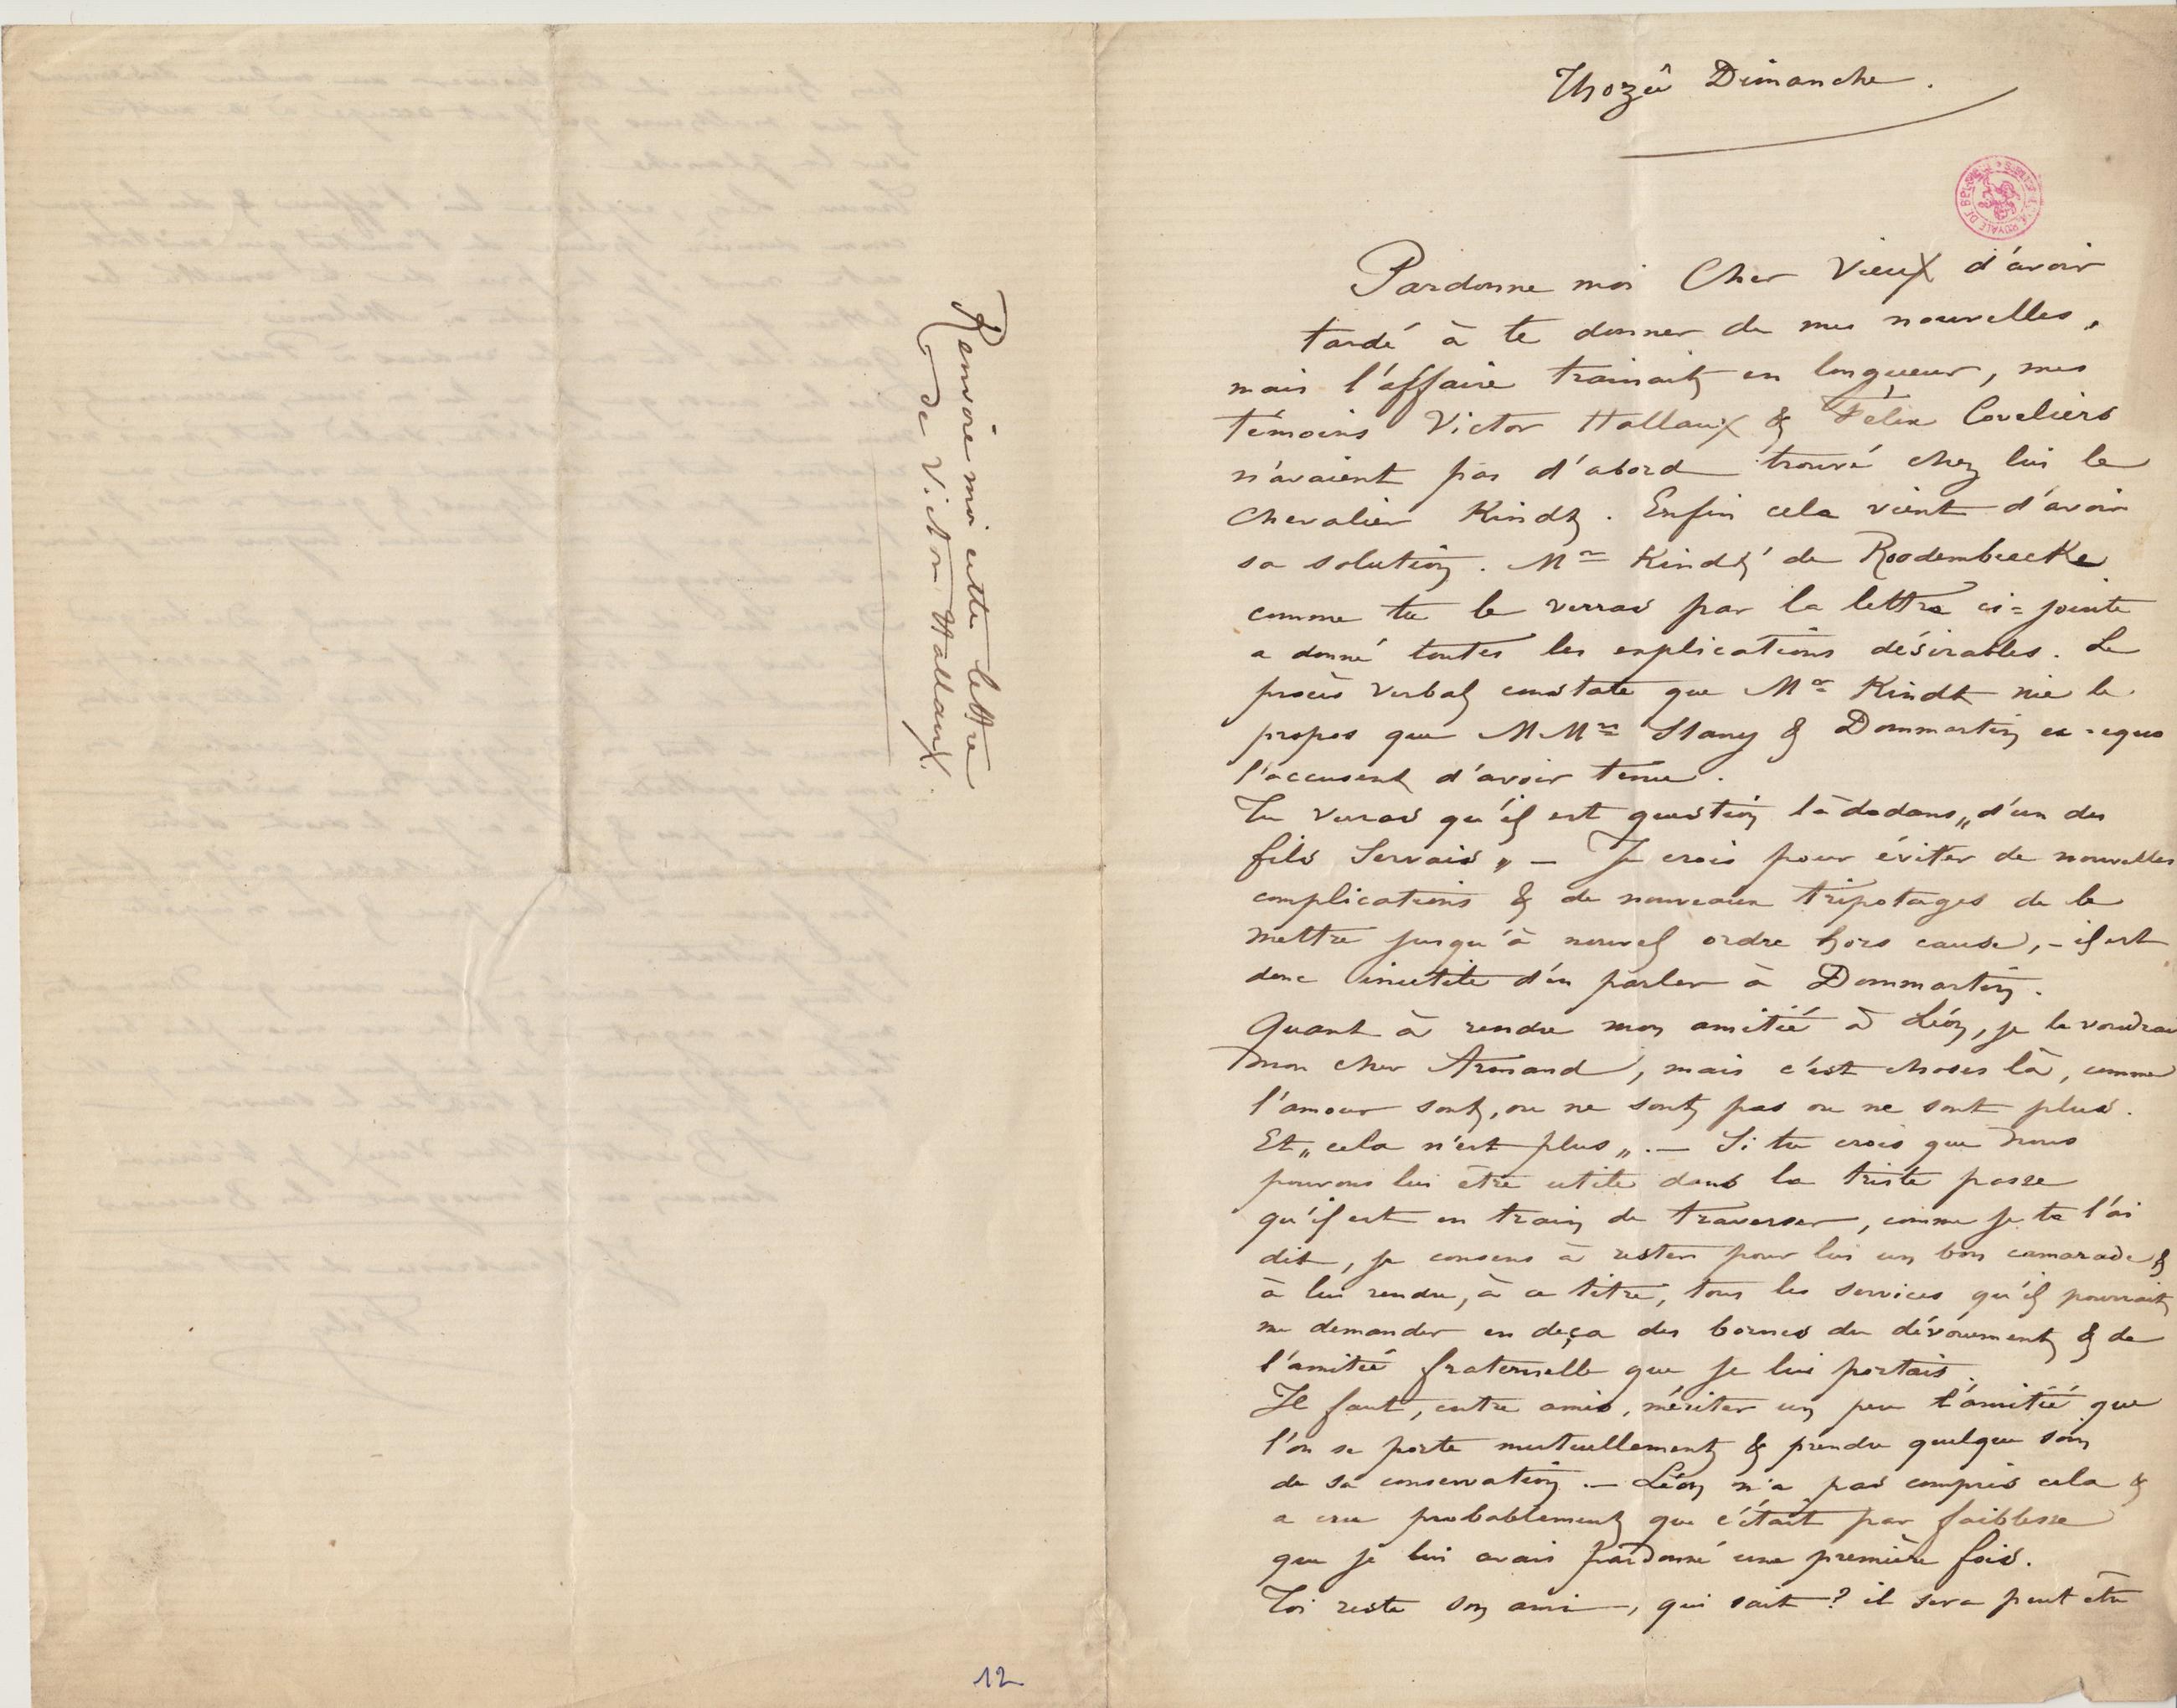 Renvoie moi cette lettre
– de Victor Hallaux.
12
Thozée Dimanche.
Pardonne moi Cher Vieux d'avoir
tardé à te donner de mes nouvelles,
mais l'affaire trainait en longueur, mes
témoins Victor Hallaux & Félix Coveliers
n'avaient pas d'abord trouvé chez lui le
Chevalier Kindt. Enfin cela vient d'avoir
sa solution. Mr Kindt de Roodembeecke
comme tu le verras par la lettre ci=jointe
a donné toutes les explications désirables. Le
procès verbal constate que Mr Kindt nie le
propos que MMrs Slany & Dommartin ex-equo
l'accusent d'avoir tenu.
Tu verras qu'il est question là dedans „d'un des
fils Servais„ – Je crois pour éviter de nouvelles
complications & de nouveaux tripotages de le
mettre jusqu'à nouvel ordre hors cause, – il est
donc inutile d'en parler à Dommartin.
Quant à rendre mon amitié à Léon, je le voudrai
mon cher Armand, mais c'est choses là, comme
l'amour sont, ou ne sont pas ou ne sont plus.
Et „cela n'est plus„. – Si tu crois que nous
pouvons lui être utile dans la triste passe
qu'il est en train de traverser, comme je te l'ai
dit, je consens à rester pour lui un bon camarade &
à lui rendre, à ce titre, tous les services qu'il pourrait
me demander en deça des bornes du dévouement & de
l'amitié fraternelle que je lui portais.
Il faut, entre amis, mériter un peu l'amitié que
l'on se porte mutuellement & prendre quelque soin
de sa conservation. – Léon n'a pas compris cela &
a cru probablement que c'était par faiblesse
que je lui avais pardonné une première fois.
Toi reste son ami, qui sait? il sera peut être